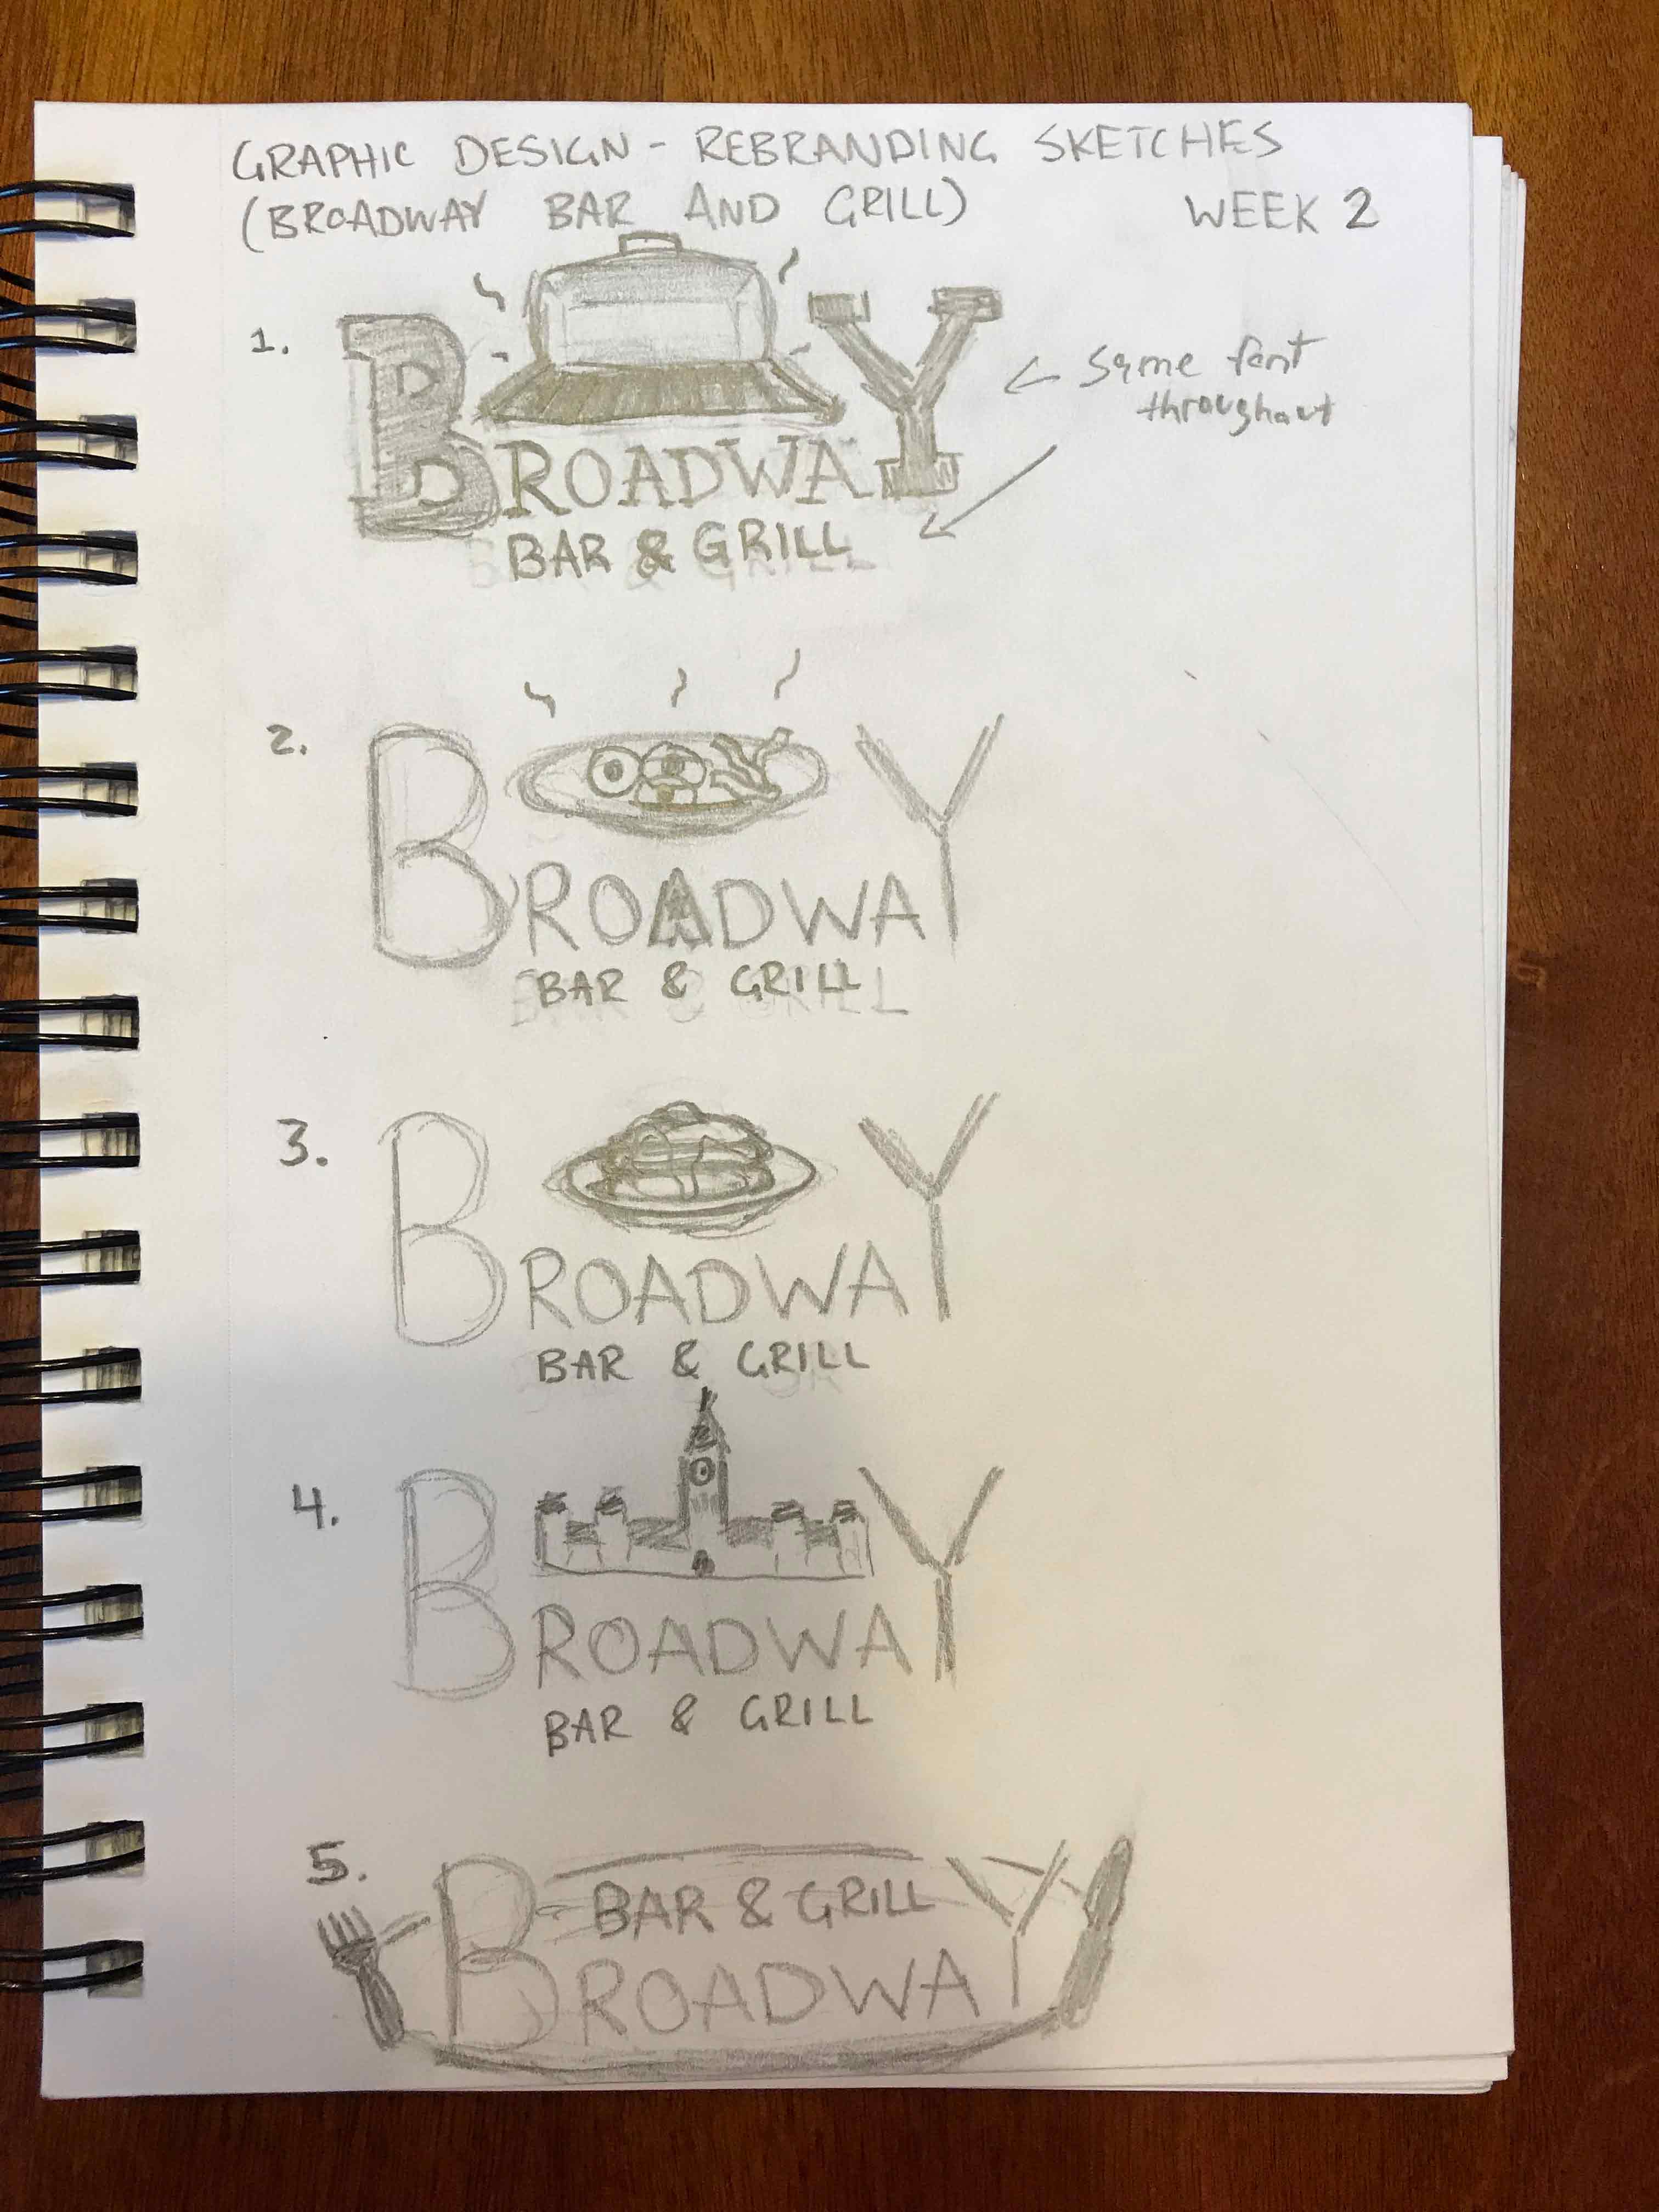 GRAPHIC DESIGN - REBRANDING SKETCHES
(BROADWAY BAR AND GRILL) WEEK 2
1.
BROADWAY
BAR & GRILL
← same font
throughout
2.
BROADWAY
BAR & GRILL
3.
BROADWAY
BAR & GRILL
4.
BROADWAY
BAR & GRILL
5.
BAR & GRILL
BROADWAY